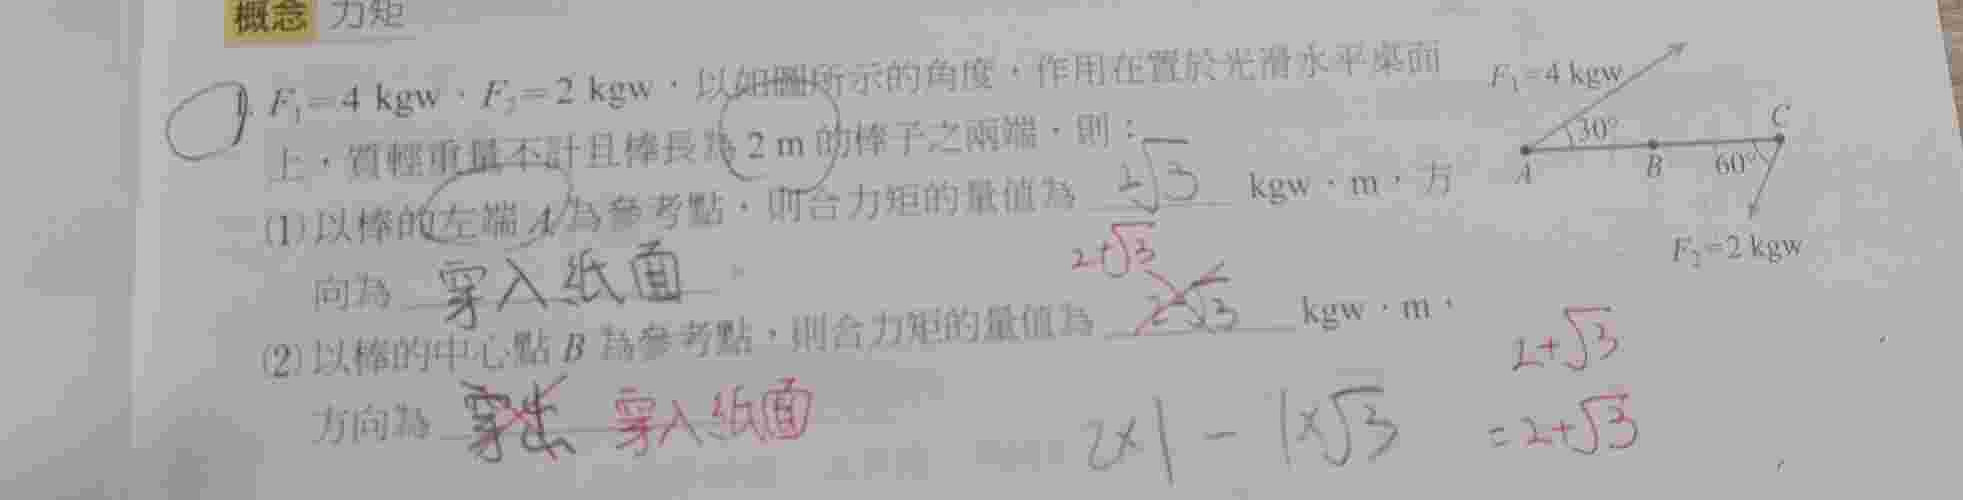 概念 力矩
1. F₁=4 kgw，F₂=2 kgw，以如圖所示的角度，作用在置於光滑水平桌面
上，質輕重量不計且棒長為 2 m 的棒子之兩端，則：
(1) 以棒的左端 A 為參考點，則合力矩的量值為 2√3 kgw．m，方
向為 穿入紙面
2+√3
(2) 以棒的中心點 B 為參考點，則合力矩的量值為 2-√3 kgw．m，
方向為 穿出 穿入紙面
2×1 - 1×√3
2+√3
=2+√3
F₁=4 kgw
30°
A
B
C
60°
F₂=2 kgw